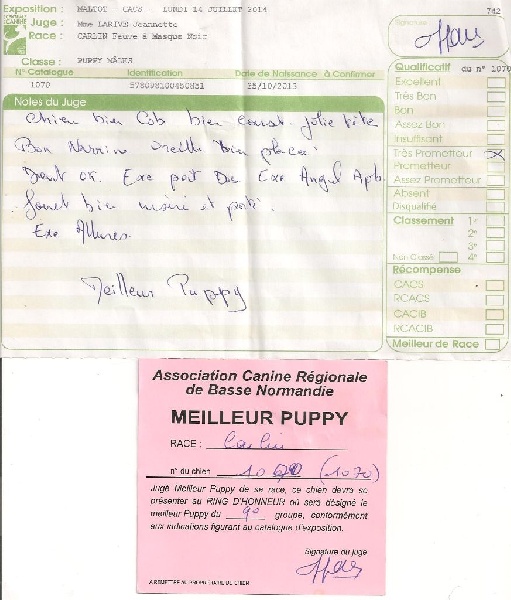 Exposition : MALTOT CACS LUNDI 14 JUILLET 2014
742
Juge : Mme LARIVE Jeannette
Race : CARLIN Fauve à Masque Noir
Classe : PUPPY MÂLES
Signature
N° Catalogue Identification Date de Naissance à Confirmer
1070 25/10/2013
Notes du Juge
Chien bien Cob bien const. jolie tête
Bon Museau oreille bien placée
Dent ok. Exe port Exe Angul
Fouet bien inséré et porté.
Exe Allures.
Meilleur Puppy
Qualificatif du n° 1070
Excellent
Très Bon
Bon
Assez Bon
Insuffisant
Très Prometteur X
Prometteur
Assez Prometteur
Absent
Disqualifié
Classement 1er
2e
3e
Non Classé 4e
Récompense
CACS
RCACS
CACIB
RCACIB
Meilleur de Race
Association Canine Régionale
de Basse Normandie
MEILLEUR PUPPY
RACE : Carlin
n° du chien (1070)
Jugé Meilleur Puppy de sa race, ce chien devra se
présenter au RING D'HONNEUR où sera désigné le
meilleur Puppy du 9e groupe, conformément
aux indications figurant au catalogue d'exposition.
Signature du juge
A REMETTRE AU PROPRIETAIRE DE CHIEN